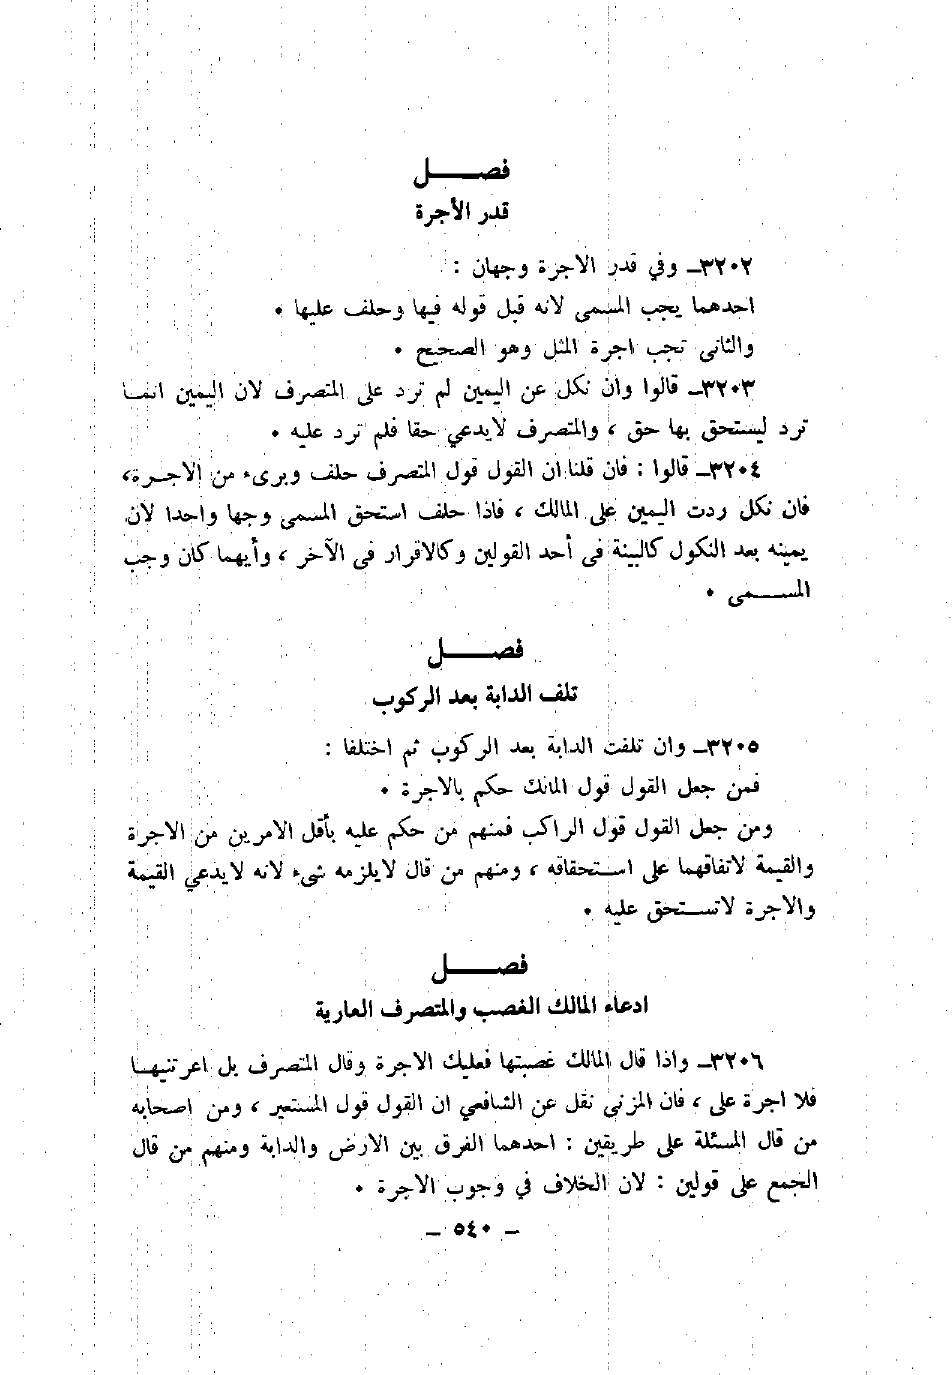 فصــــــل
قدر الأجرة
٣٢٠٢ـ وفي قدر الاجرة وجهان :
احدهما يجب المسمى لانه قبل قوله فيها وحلف عليها ٠
والثانى تجب اجرة المثل وهو الصحيح ٠
٣٢٠٣ـ قالوا وان نكل عن اليمين لم ترد على المتصرف لان اليمين انمــا
ترد ليستحق بها حق ، والمتصرف لايدعي حقا فلم ترد عليه ٠
٣٢٠٤ـ قالوا : فان قلنا ان القول قول المتصرف حلف وبرىء من الاجـرة،
فان نكل ردت اليمين على المالك ، فاذا حلف استحق المسمى وجها واحدا لان
يمينه بعد النكول كالبينة فى أحد القولين وكالاقرار فى الآخر ، وأيهما كان وجب
المســــمى ٠
فصــــــل
تلف الدابة بعد الركوب
٣٢٠٥ـ وان تلفت الدابة بعد الركوب ثم اختلفا :
فمن جعل القول قول المالك حكم بالاجرة ٠
ومن جعل القول قول الراكب فمنهم من حكم عليه بأقل الامرين من الاجرة
والقيمة لاتفاقهما على اســتحقاقه ، ومنهم من قال لايلزمه شىء لانه لايدعي القيمة
والاجرة لاتســتحق عليه ٠
فصــــــل
ادعاء المالك الغصب والمتصرف العارية
٣٢٠٦ـ واذا قال المالك غصبتها فعليك الاجرة وقال المتصرف بل اعرتنيهــا
فلا اجرة على ، فان المزنى نقل عن الشافعي ان القول قول المستعير ، ومن اصحابه
من قال المسئلة على طريقين : احدهما الفرق بين الارض والدابة ومنهم من قال
الجمع على قولين : لان الخلاف في وجوب الاجرة ٠
ـ ٥٤٠ ـ